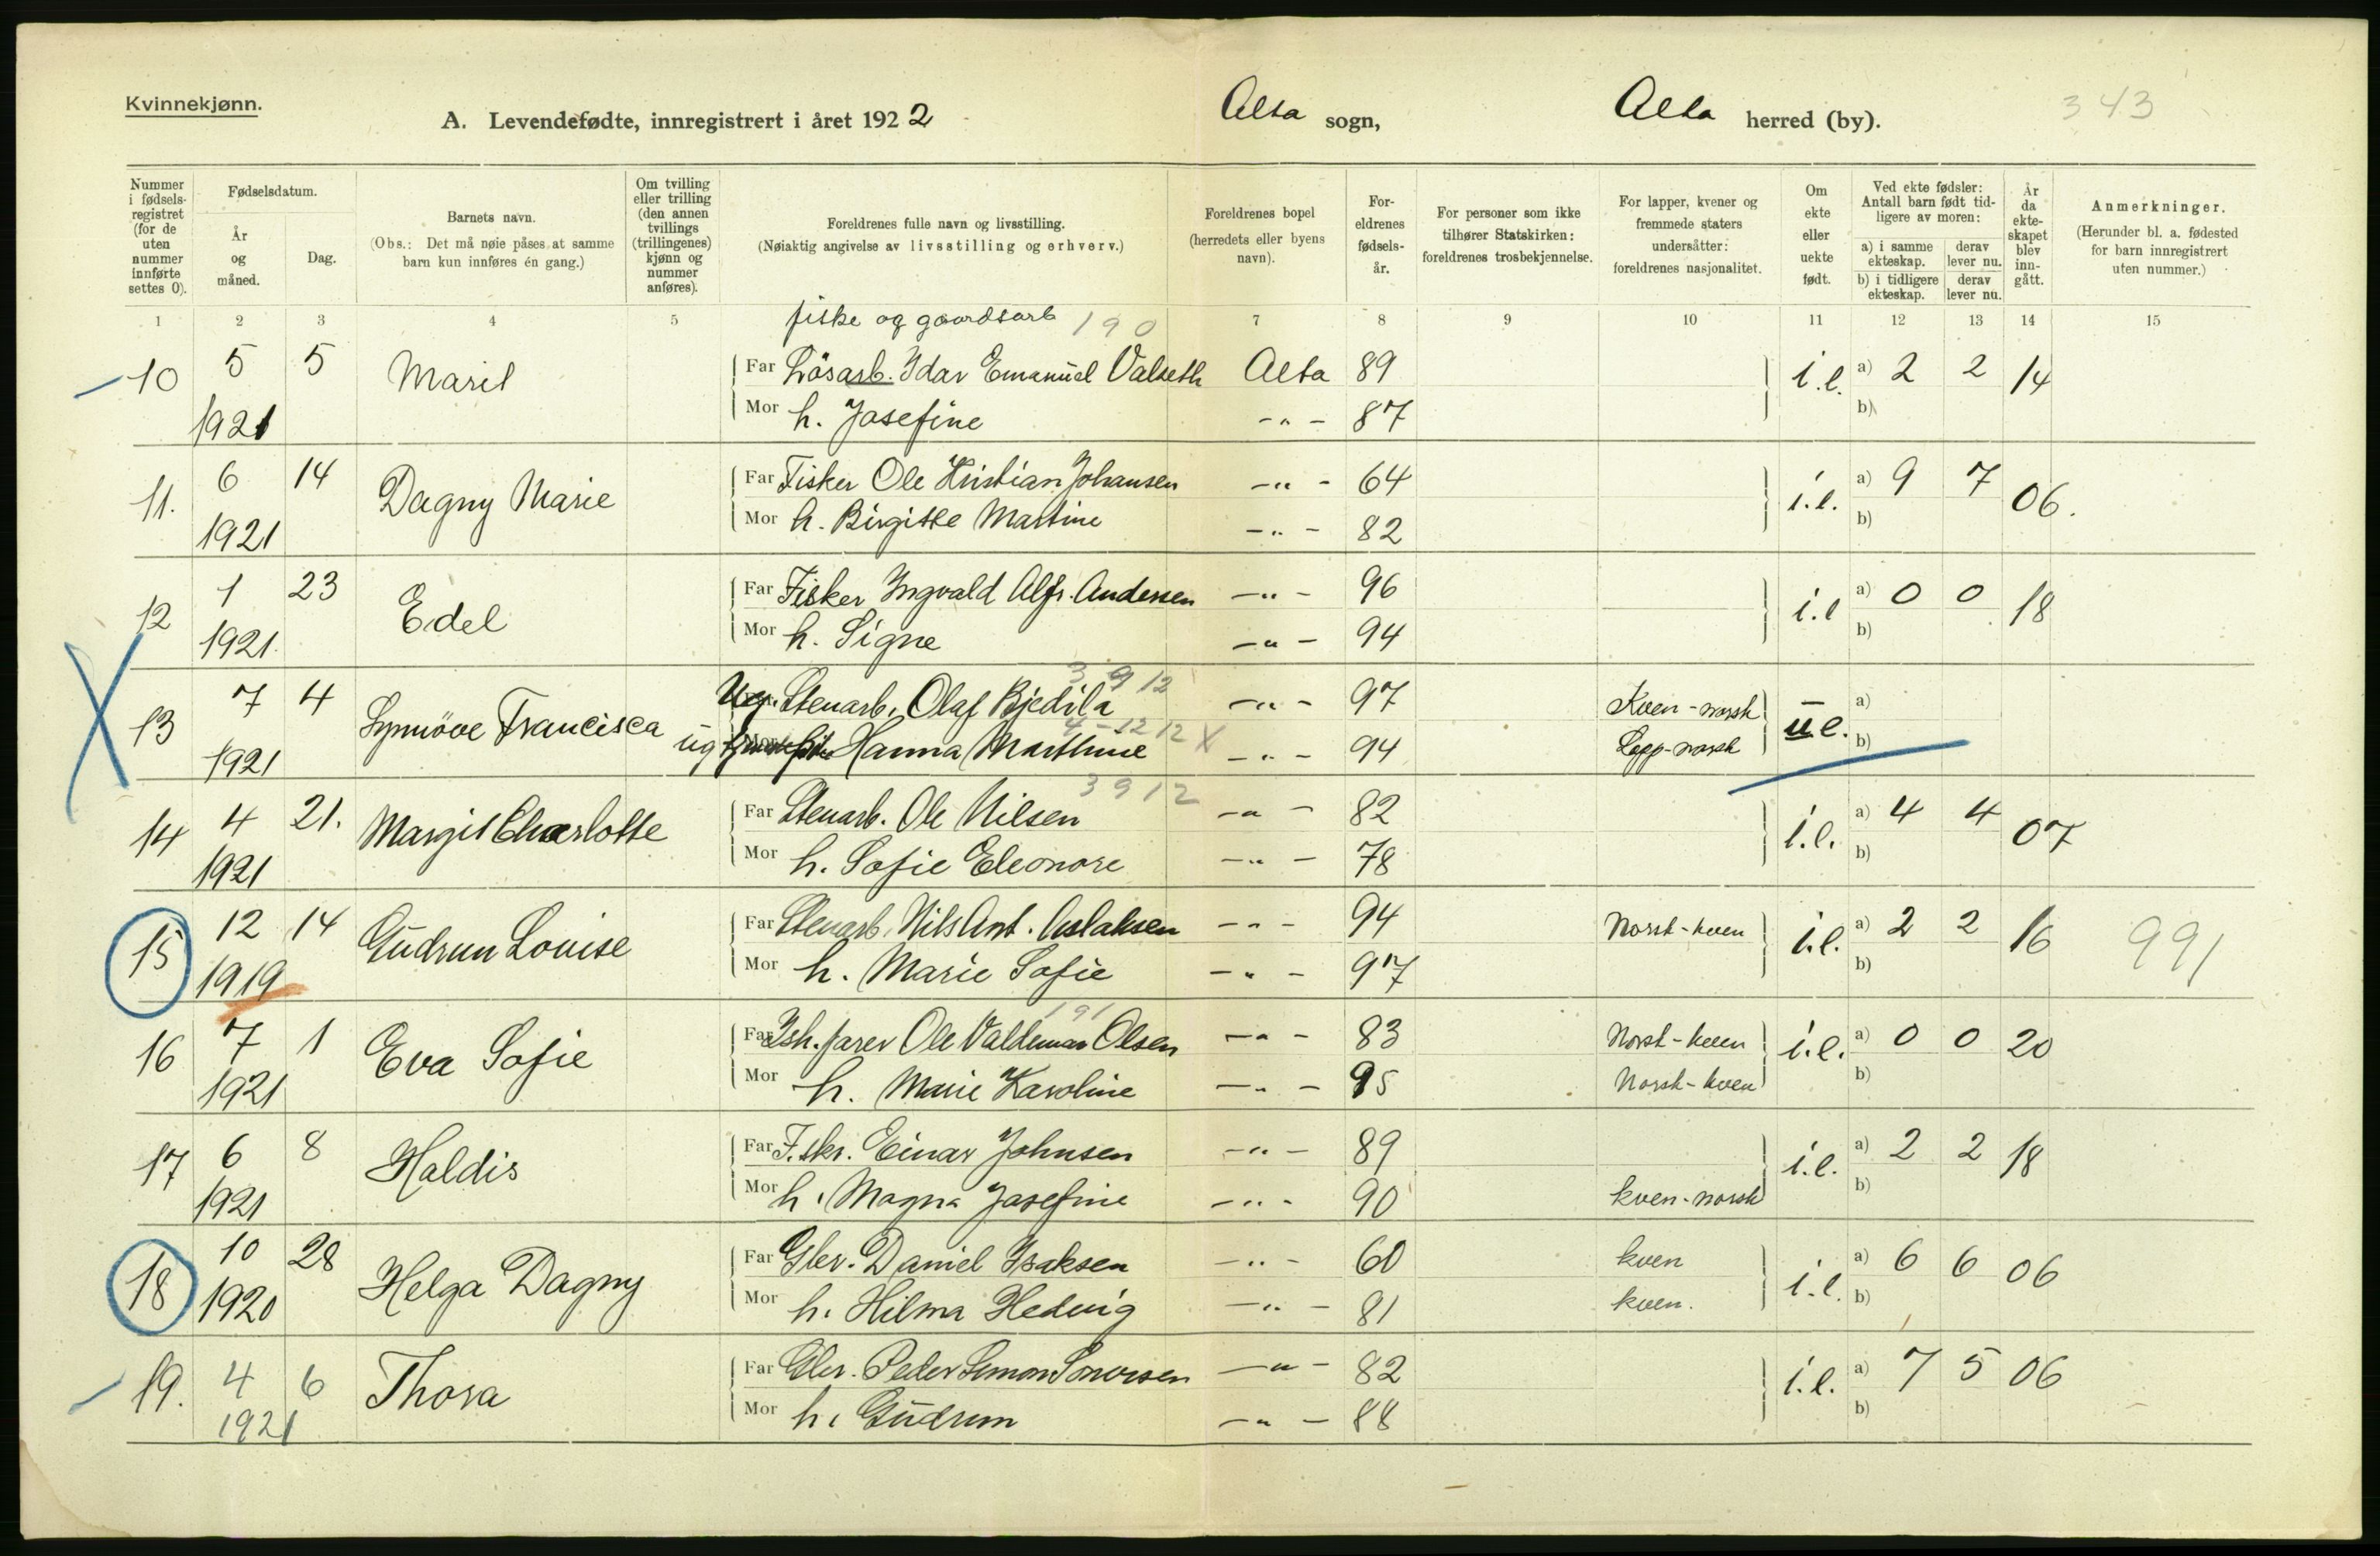 Kvinnekjønn.
A. Levendefødte, innregistrert i året 1922 Alta sogn, Alta herred (by). 343
Nummer i fødsels-registret (for de uten nummer innførte settes 0).
Fødselsdatum.
År og måned.
Dag.
Barnets navn.
(Obs.: Det må nøie påses at samme barn kun innføres én gang.)
Om tvilling eller trilling (den annen tvillings (trillingenes) kjønn og nummer anføres).
Foreldrenes fulle navn og livsstilling.
(Nøiaktig angivelse av livsstilling og erhverv.)
Foreldrenes bopel (herredets eller byens navn).
For-eldrenes fødsels-år.
For personer som ikke tilhører Statskirken: foreldrenes trosbekjennelse.
For lapper, kvener og fremmede staters undersåtter: foreldrenes nasjonalitet.
Om ekte eller uekte født.
Ved ekte fødsler: Antall barn født tid-ligere av moren:
a) i samme ekteskap. derav lever nu.
b) i tidligere ekteskap. derav lever nu.
År da ekte-skapet blev inn-gått.
Anmerkninger.
(Herunder bl. a. fødested for barn innregistrert uten nummer.)
1 2 3 4 5 7 8 9 10 11 12 13 14 15
fiske og gaardsarb 190
10 5 5 Marit Far Løsarb. Idar Emanuel Valseth Alta 89 i.e. a) 2 2 14
1921 Mor h. Josefine -"- 87 b)
11. 6 14 Dagny Marie Far Fisker Ole Kristian Johansen -"- 64 i.e. a) 9 7 06.
1921 Mor h. Birgitte Martine -"- 82 b)
12 1 23 Edel Far Fisker Ingvald Alfr. Andersen -"- 96 i.e a) 0 0 18
1921. Mor h. Signe -"- 94 b)
3912
13 7 4 Synnöve Francisca Ug. Stenarb. Olaf Bjedila -"- 97 Kven-norsk u.e. a)
4-1212 X
1921 ug Hanna Marthine -"- 94 Lapp-norsk b)
3912
14 4 21. Margit Charlotte Far Stenarb. Ole Nilsen -"- 82 i.e. a) 4 4 07
1921 Mor h. Sofie Eleonore -"- 78 b)
15 12 14 Gudrun Louise Far Stenarb. Nils Ant. Aslaksen -"- 94 Norsk-kven i.e. a) 2 2 16 991
1919 Mor h. Marie Sofie -"- 97 b)
191
16 7 1 Eva Sofie Far Ish.farer Ole Valdemar Olsen -"- 83 Norsk-kven i.e. a) 0 0 20
1921 Mor h. Marie Karoline -"- 95 Norsk-kven b)
17 6 8 Haldis Far F.skr. Einar Johnsen -"- 89 i.e. a) 2 2 18
1921 Mor h. Magna Josefine -"- 90 kven-norsk b)
18 10 28 Helga Dagny Far Gbr. Daniel Isaksen -"- 60 kven i.e. a) 6 6 06
1920 Mor h. Hilma Hedvig -"- 81 kven. b)
19. 4 6 Thora Far Gbr. Peder Simon -"- 82 i.e. a) 7 5 06
1921 Mor h. Gudrun -"- 88 b)